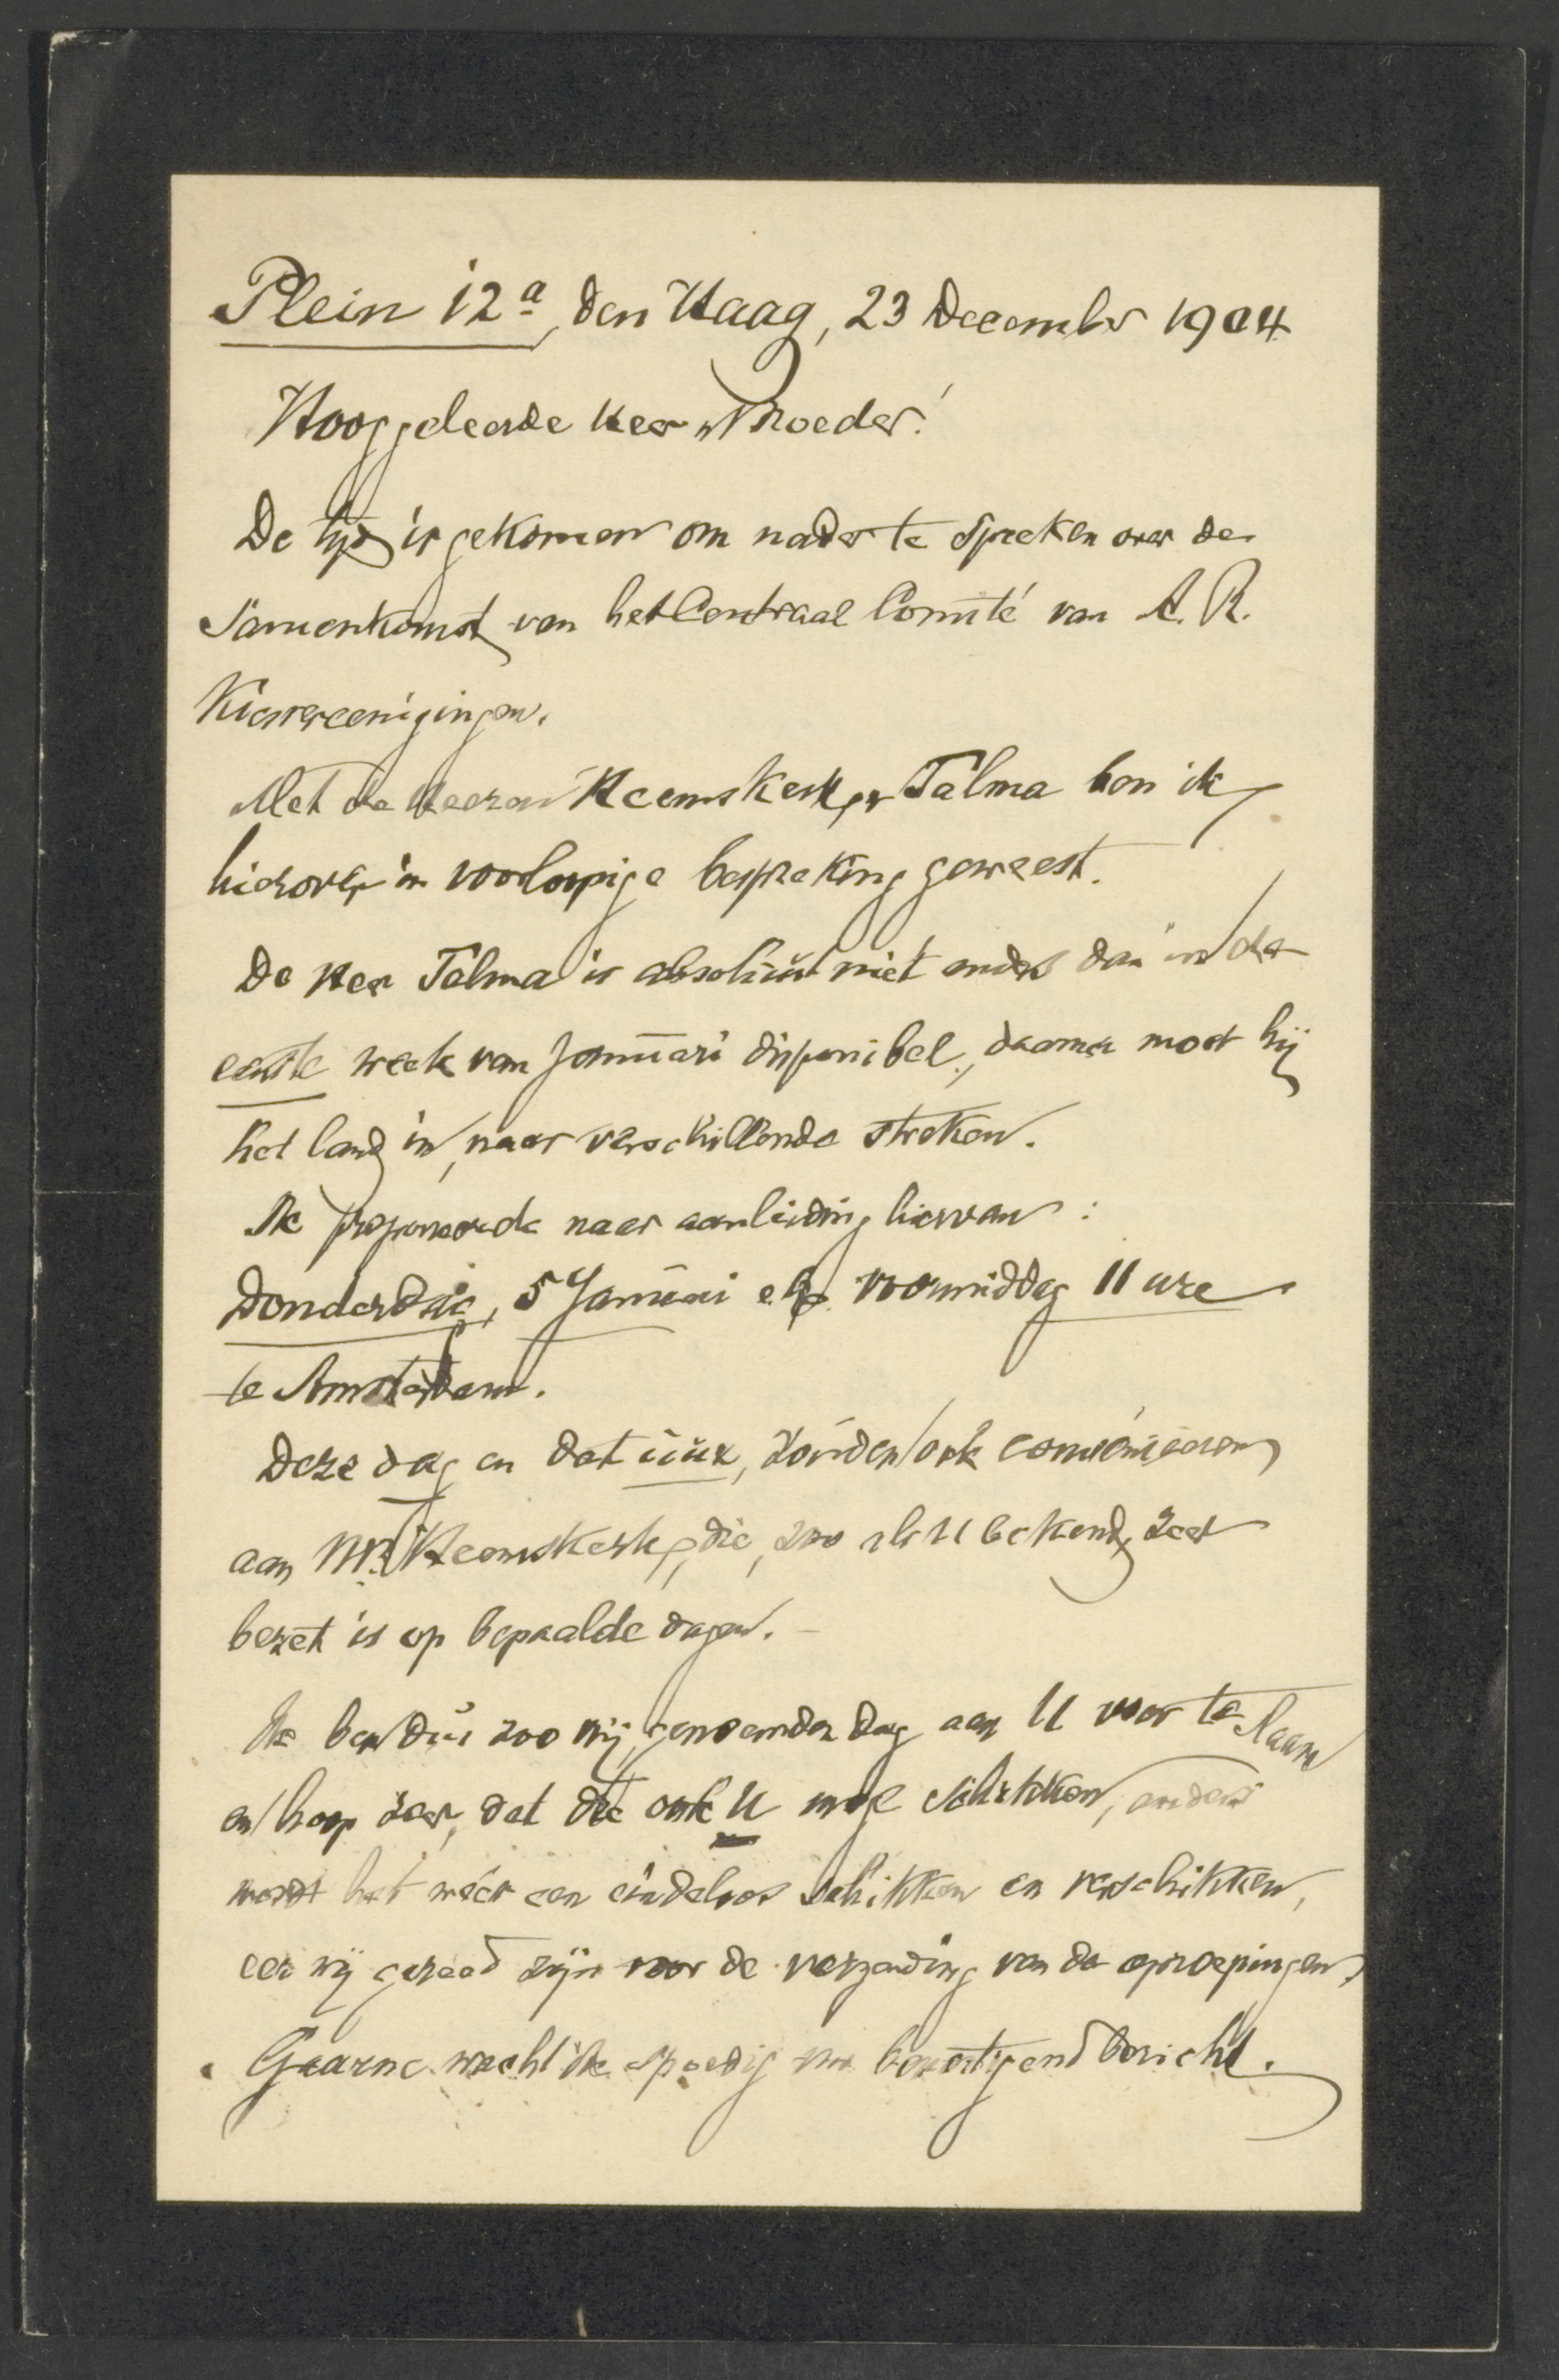 Plein 12a, den Haag, 23 December 1904
Hooggeleerde Heer en Broeder!
De tijd is gekomen om nader te spreken over de
samenkomst van het Centraal Comité van A. R.
Kiesvereenigingen.
Met de Heeren Heemskerk en Talma ben ik
hierover in voorloopige bespreking geweest.
De Heer Talma is absoluut niet anders dan in de
eerste week van Januari disponibel, daarna moet hij
het land in, naar verschillende streken.
Ik proponeerde naar aanleiding hiervan:
Donderdag, 5 Januari e.k. voormiddag 11 ure
te Amsterdam.
Deze dag en dat uur, zouden ook conveniëeren
aan Mr. Heemskerk, die, zoo als U bekend, zeer
bezet is op bepaalde dagen.
Ik ben dus zoo vrij, genoemden dag aan U voor te slaan
en hoop zeer, dat die ook U moge schikken, anders
wordt het wéér een eindeloos schikken en verschikken,
eer wij gereed zijn voor de verzending van de oproepingen.
Gaarne wacht ik spoedig een bevestigend bericht.